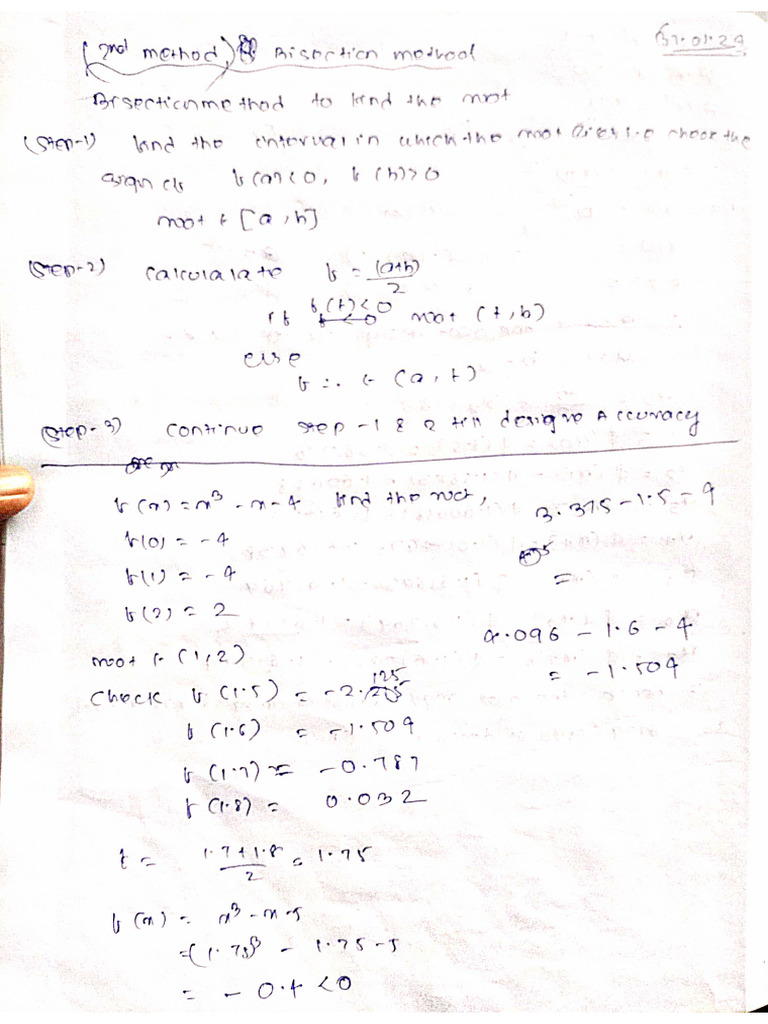 31.01.24
(2nd method) Bisection method
Bisection method to find the root
(Step-1) find the interval in which the root lies i.e check the
sign of f(a)<0, f(b)>0
root ∈ [a, b]
(Step-2) Calculalate t = (a+b)/2
if f(t)<0 root (t, b)
else
∈ (a, t)
(Step-3) Continue Step-1 & 2 till desigre Accuracy
f(x) = x³ - x - 4 find the root,
3.375 - 1.5 - 4
=
f(0) = -4
f(1) = -4
f(2) = 2
root ∈ (1,2)
4.096 - 1.6 - 4
= -1.504
Check f(1.5) = -2.125
f(1.6) = -1.504
f(1.7) = -0.787
f(1.8) = 0.032
t = (1.7+1.8)/2 = 1.75
f(x) = x³ - x - 5
= (1.75)³ - 1.75 - 5
= - 0.4 < 0